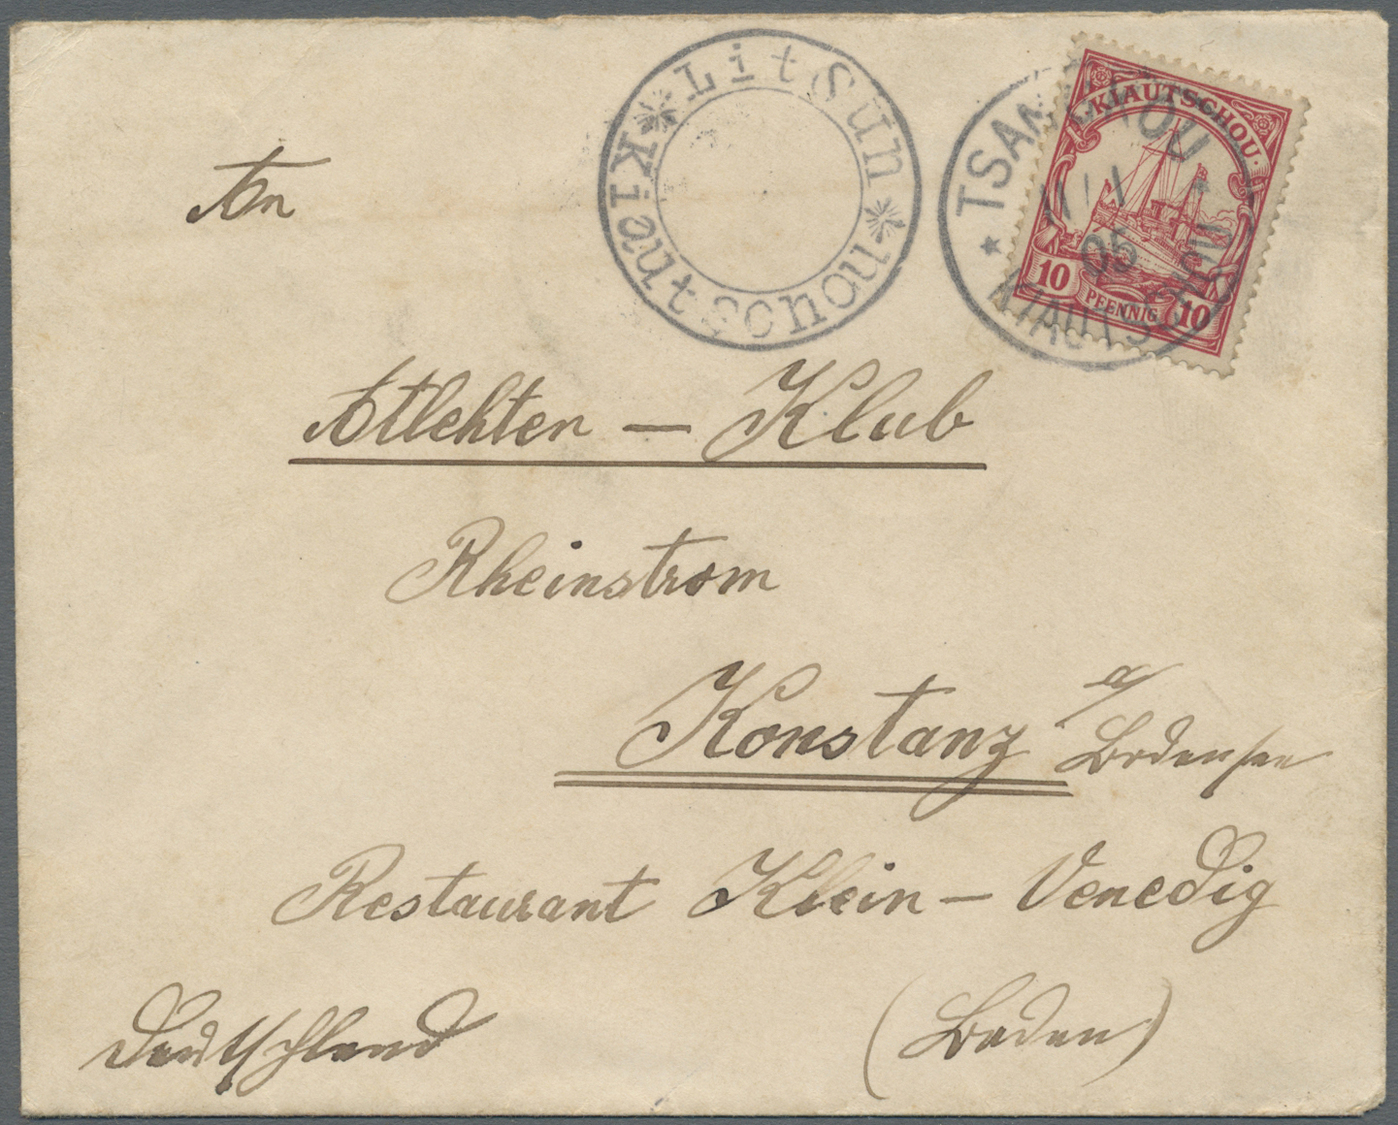 LitSun
Kiautschou
TSANGKOU
05
KIAUTSCHOU
KIAUTSCHOU
10 PFENNIG 10
An
Atlehten - Klub
Rheinstrom
Konstanz a/ Bodensee
Restaurant Klein - Venedig
Deutschland (Baden)